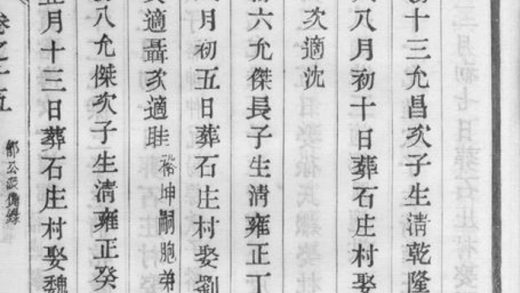 十三允昌次子生清乾隆
八月初十日葬石庄村娶
次適沈
初六允傑長子生清雍正丁
月初五日葬石庄村娶劉
適聶次適眭 裕坤嗣胞弟
八允傑次子生清雍正癸
五月十三日葬石庄村娶魏
卷之十五